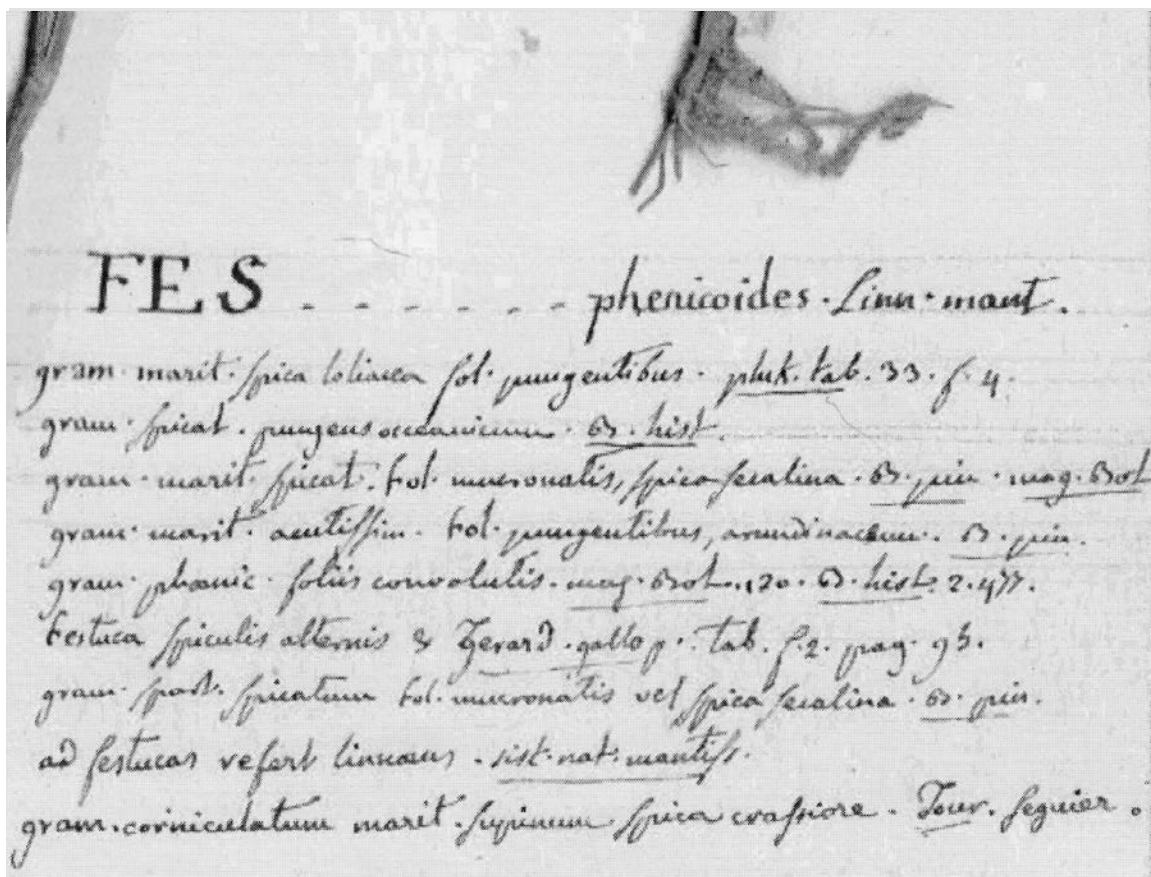 FES - - - - - - phenicoides · Linn · mant.
gram · marit · spica loliacea fol · pungentibus · pluk. tab. 33. f. 4.
gram · spicat · pungens oceanicum · B. hist.
gram · marit · spicat. fol · mucronatis, spica secalina · B. pin · mag. Bot
gram · marit · acutissim · fol · pungentibus, arundinaceum. B. pin.
gram · phœnic · foliis convolutis · mag · Bot. 120. B. hist. 2. 477.
festuca spiculis alternis & Gerard. gallo p. tab. f. 2. pag. 95.
gram · spart. spicatum fol. mucronatis vel spica secalina · B. pin.
ad festucas refert linnœus. sist. nat. mantiss.
gram. corniculatum marit. supinum spica crassiore. Tour. seguier.